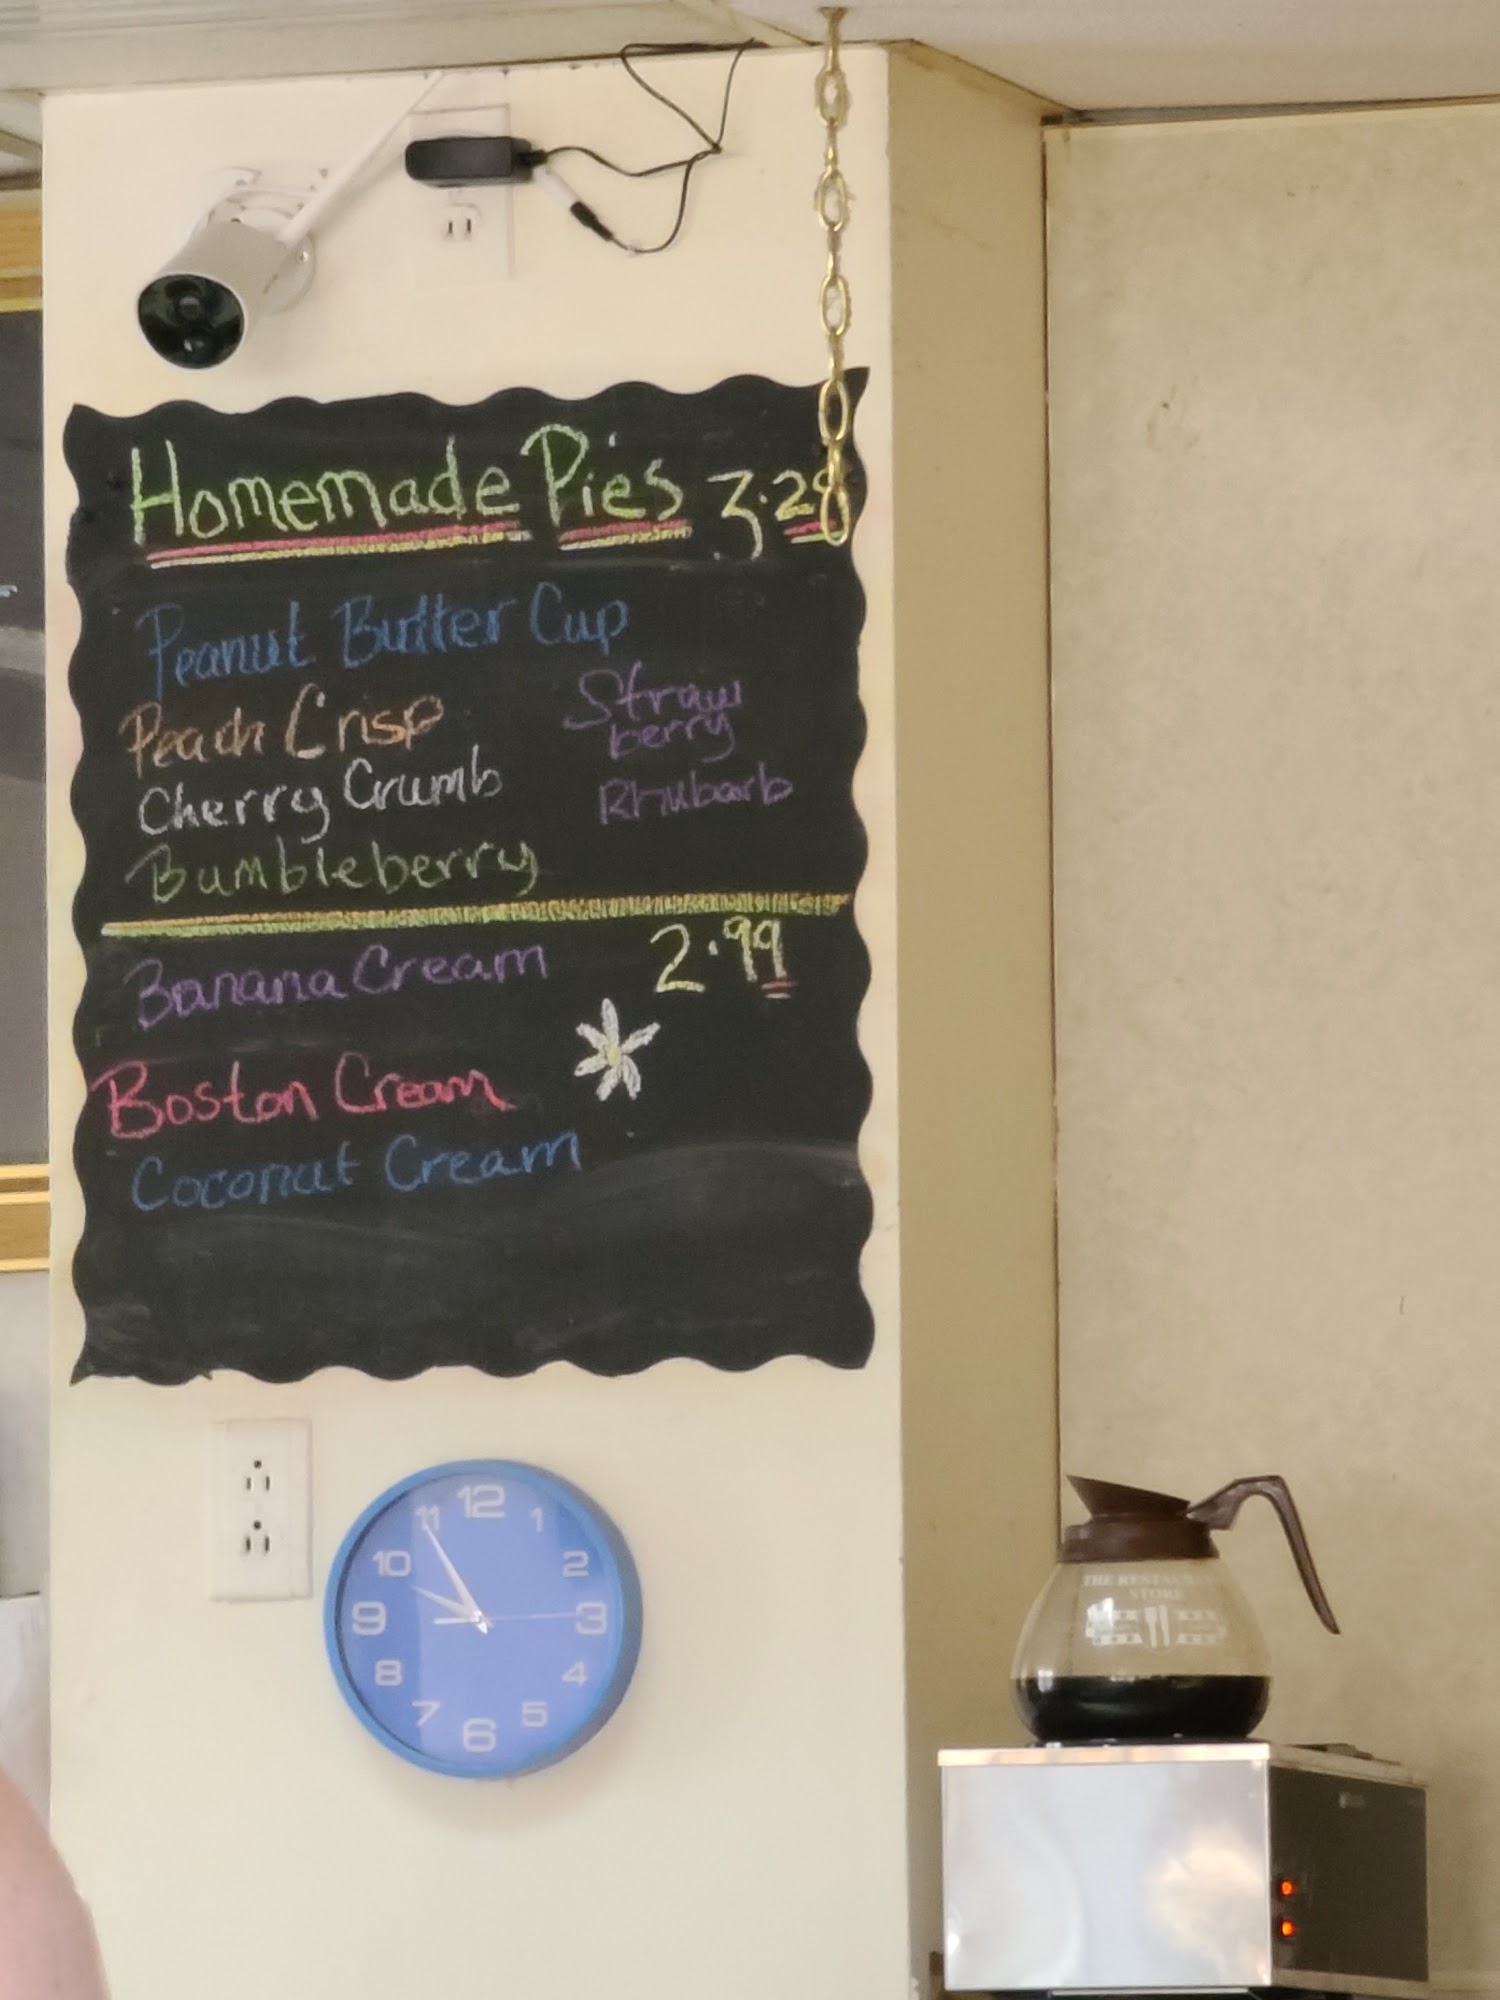 Homemade Pies 3.29
Peanut Butter Cup
Peach Crisp
Cherry Crumb
Bumbleberry
Straw
berry
Rhubarb
Banana Cream 2.99
Boston Cream
Coconut Cream
12
1
2
3
4
5
6
7
8
9
10
11
THE RESTAURANT
STORE